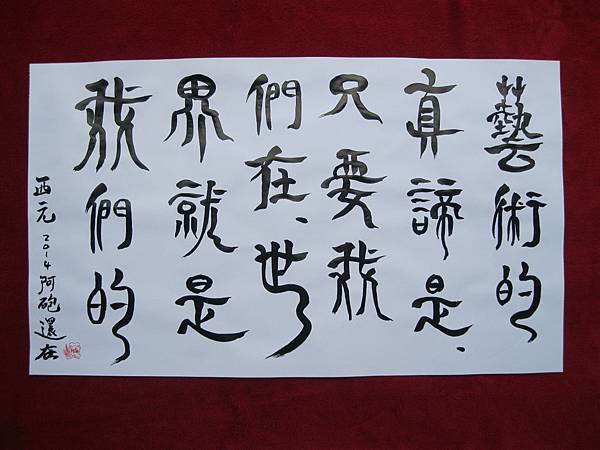 藝術的
真諦是、
只要我
們在、世
界就是
我們的
西元2014阿砲還在